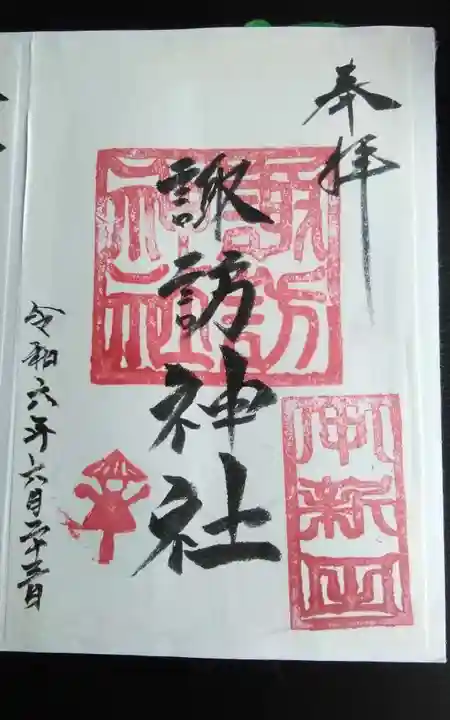 奉拝
諏訪神社
諏訪神社
令和六年六月二十三日